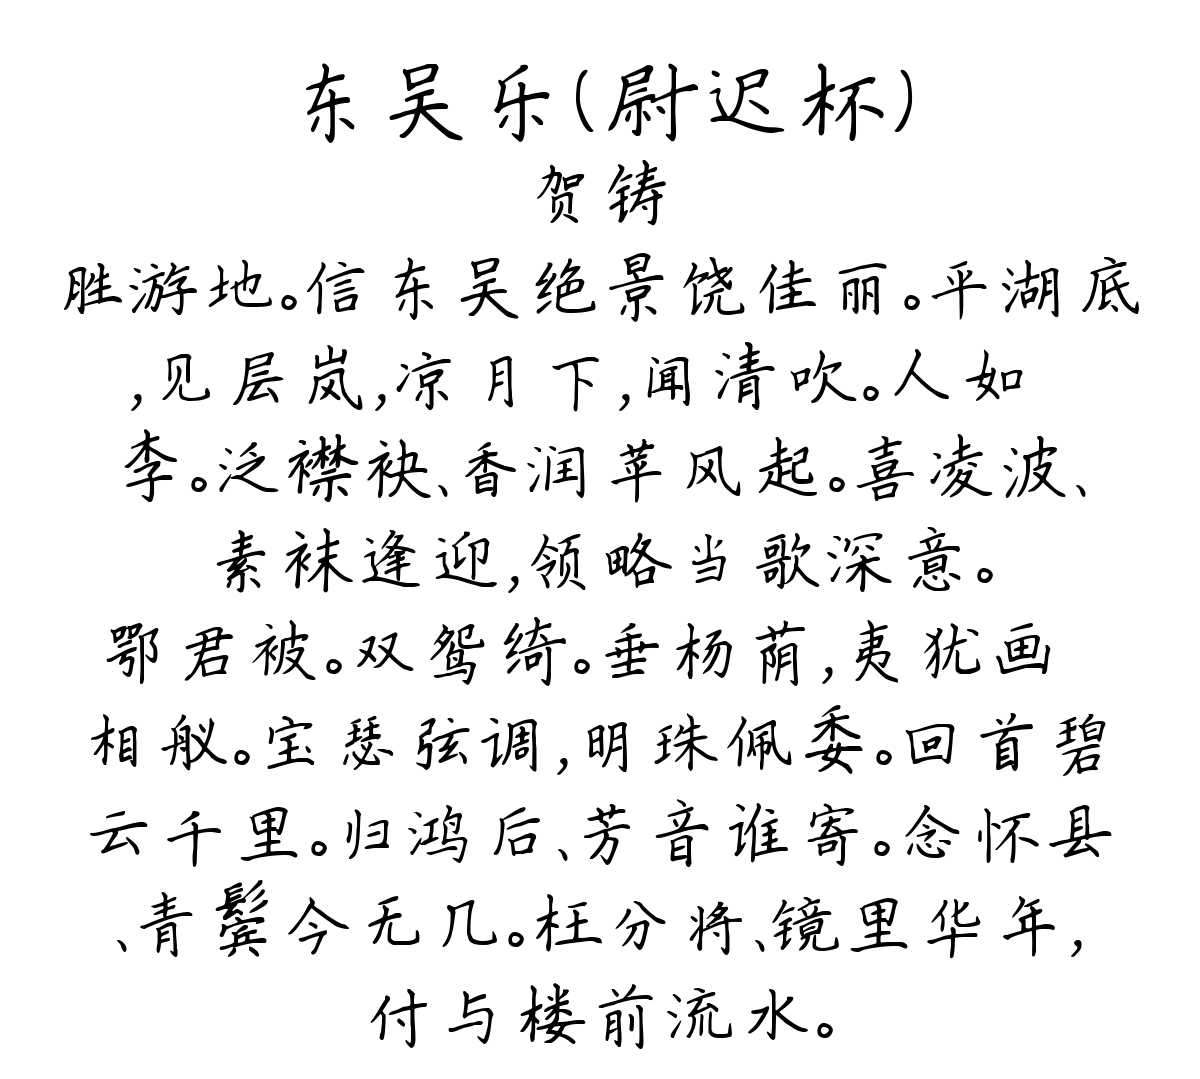 东吴乐(尉迟杯)
贺铸
胜游地。信东吴绝景饶佳丽。平湖底
,见层岚,凉月下,闻清吹。人如
李。泛襟袂、香润苹风起。喜凌波、
素袜逢迎,领略当歌深意。
鄂君被。双鸳绮。垂杨荫,夷犹画
相舣。宝瑟弦调,明珠佩委。回首碧
云千里。归鸿后、芳音谁寄。念怀县
、青鬓今无几。枉分将、镜里华年,
付与楼前流水。